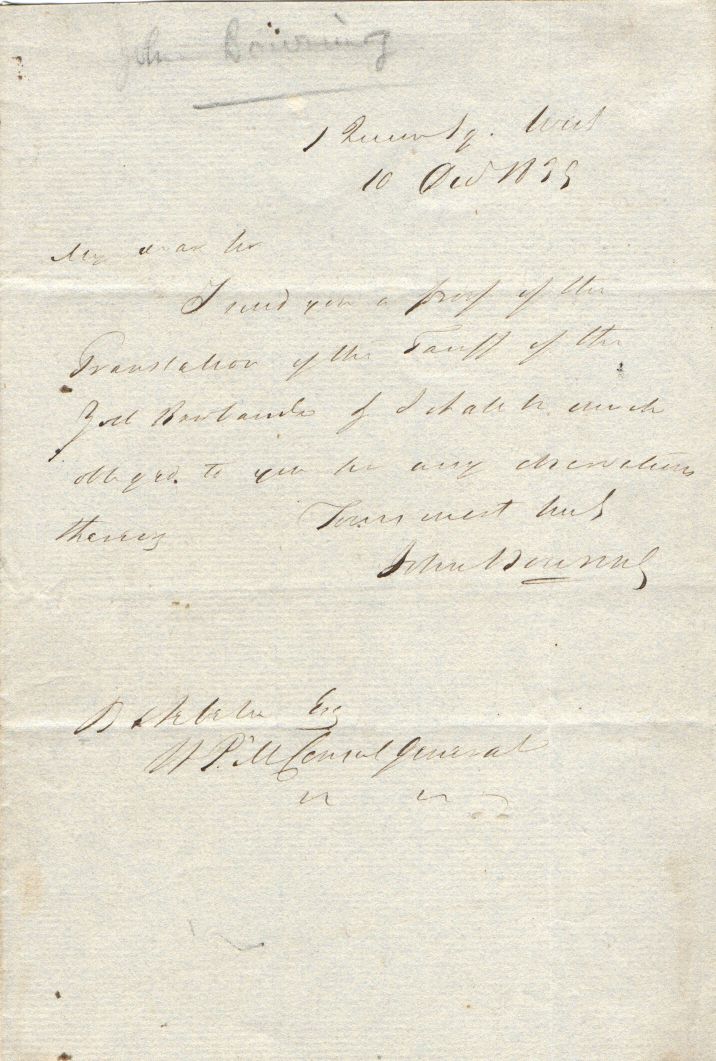 John Bowring
1 Queen Sq. West
10 Oct 1839
My dear Sir
I send you a proof of the
Translation of the Tariff of the
Zoll & I shall be much
obliged to you for any observations
thereon Yours most truly
John Bowring
B Hebeler Esq
H P M Consul General